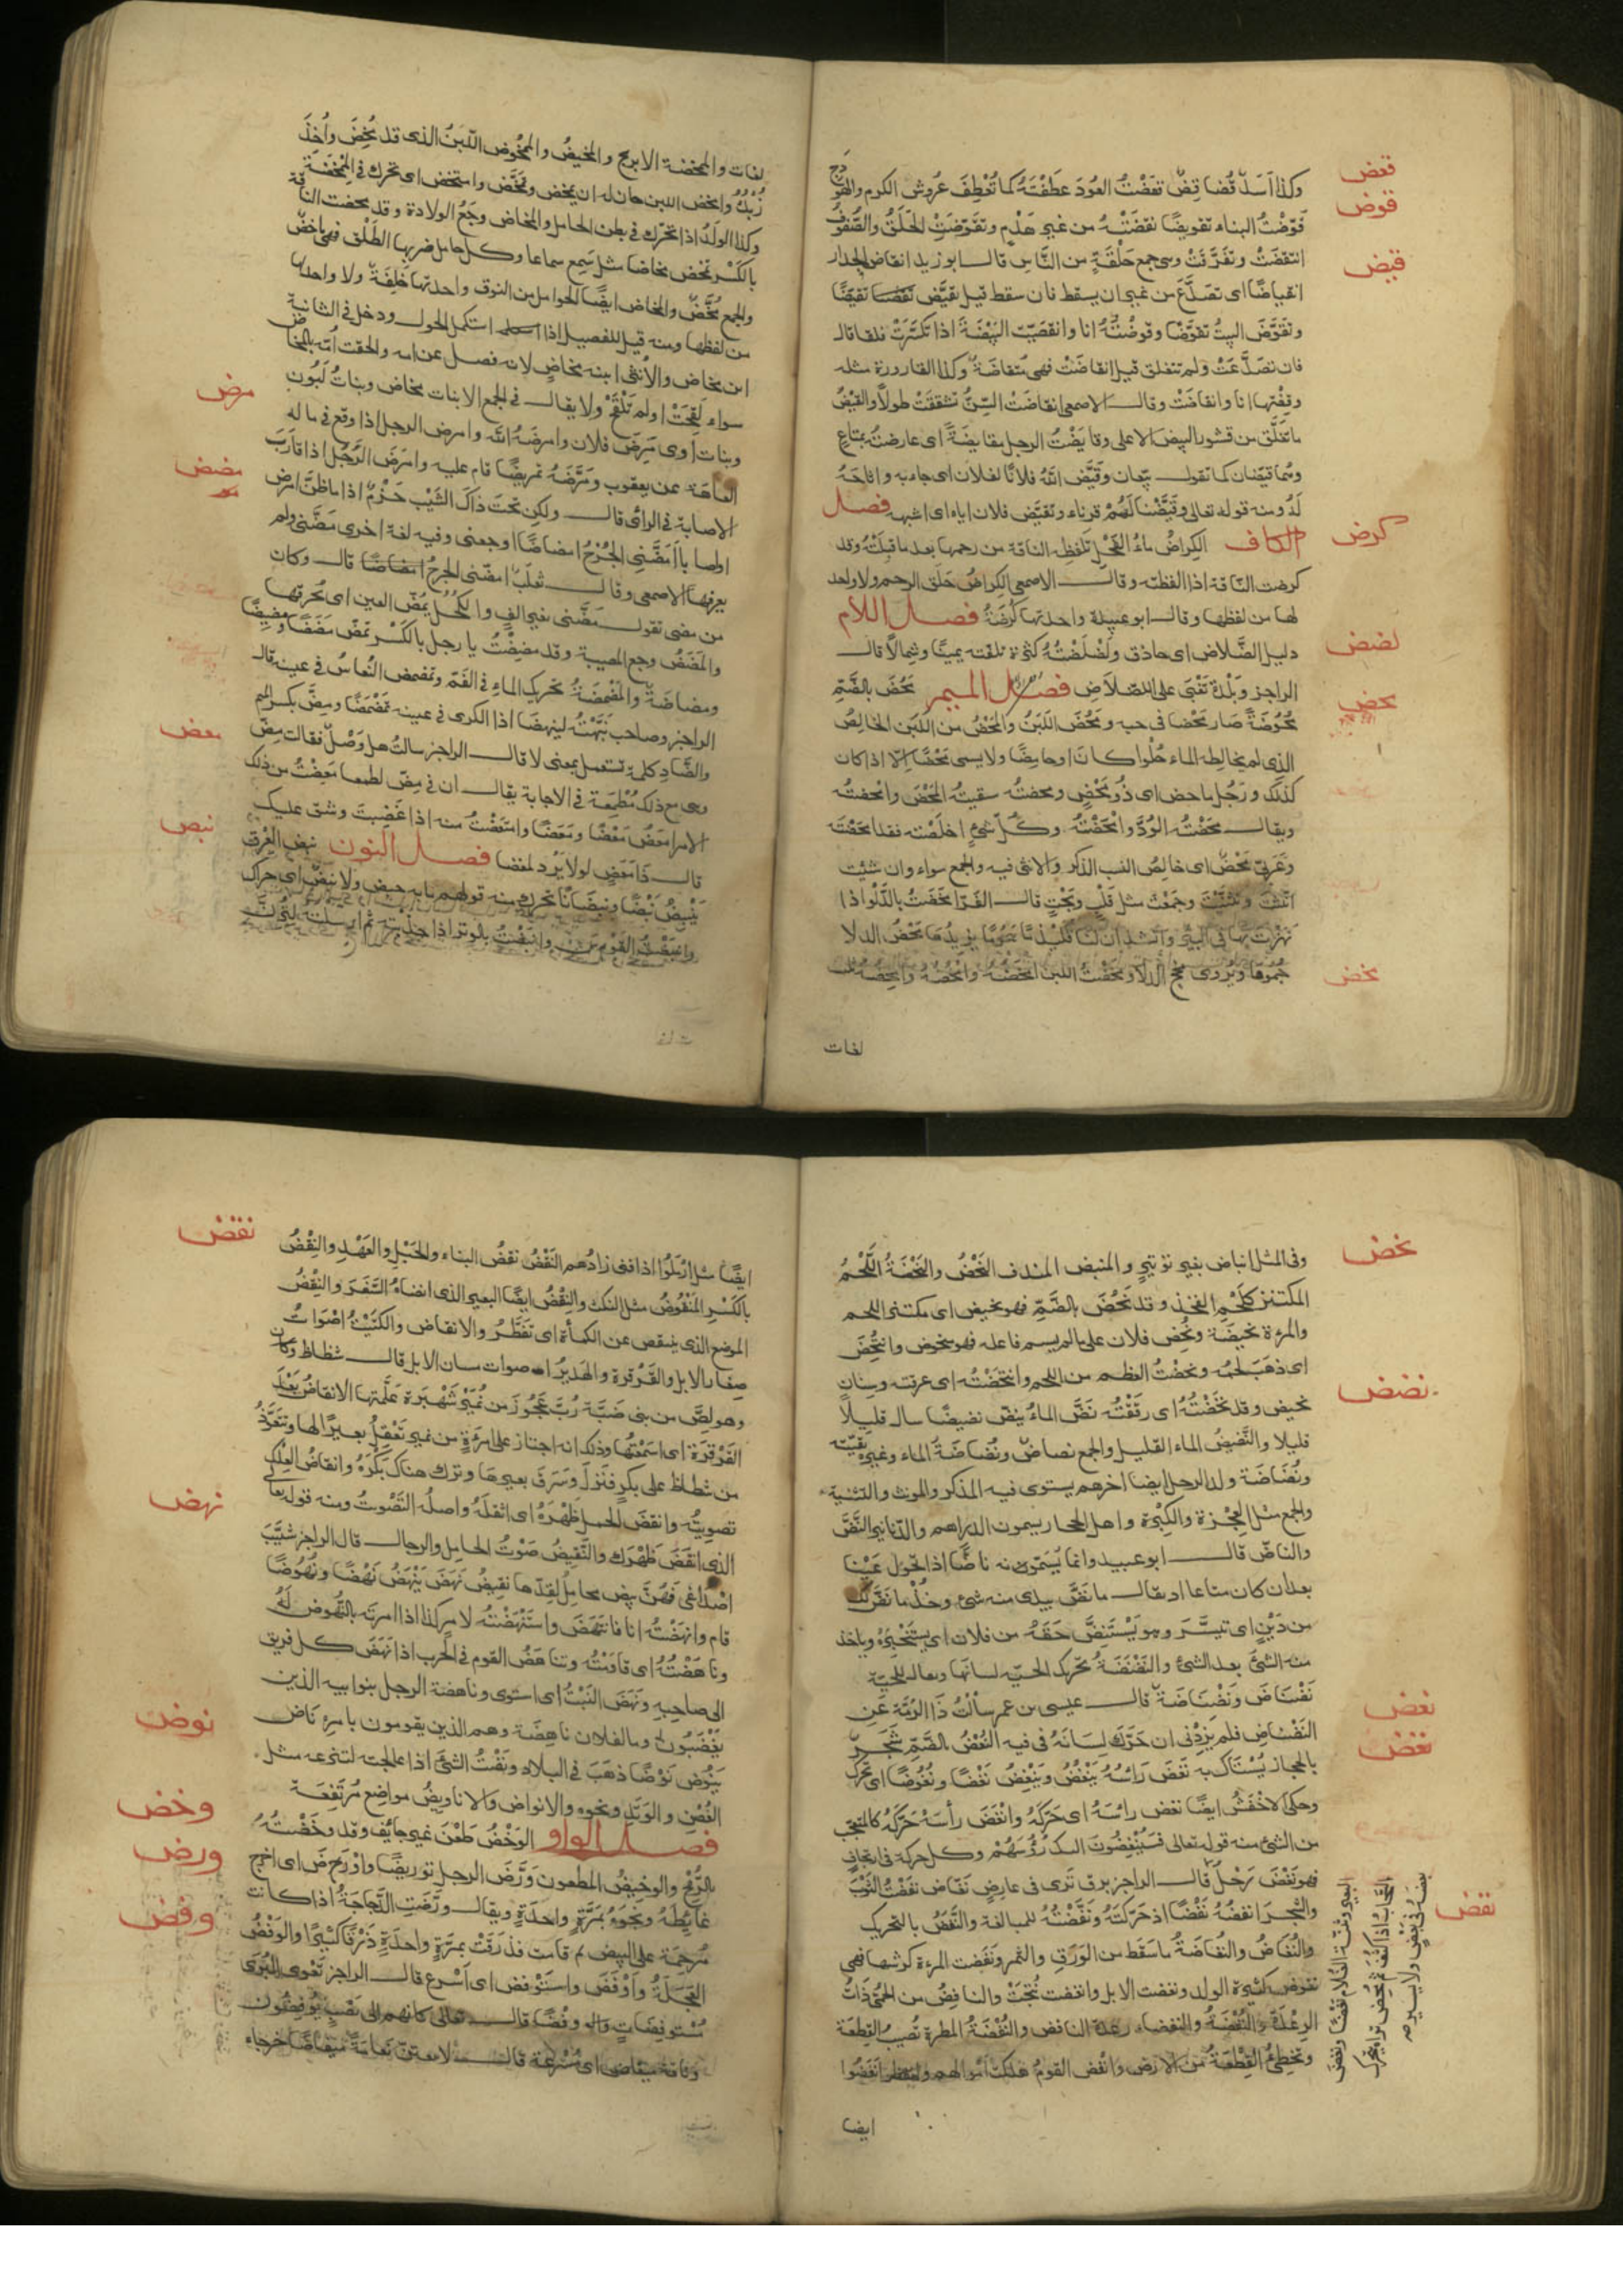 قعض
وكذا اسدٌ قُضا قِضّ تعَضْتُ العُودَ عَطَفْتَهُ كما تُعْطِفَ عُروُش الكرم والهودج
قوض
قَوّضْتُ البناء تقويضًا نقضَتْهُ من غير هَدْمٍ وتقوّضَتِ الحَلَقُ والصُّفوُفُ
انتقضَتْ وتفَرَّقَتْ وهي جمع حَلْقَةٍ من النَّاسِ قال ابو زيد انقاض الجدار
قيض
انقياضًا اى تصَدَّعَ من غير ان يسقط فان سقط قيل تقيَّض تقيّضًا
وتقوَّضَ البيتُ تقوّضًا وقوضْتُهُ انا وانقضَّت البَيْضَةَ اذا تكسَّرَتْ فلقا قال
فان تصَدَّعَتْ ولم تنفلق قيل انقاضَتْ فهى منقاضَةٌ وكذا القارورة مثله
وقِضْتها انا وانقاضَتْ وقال الاصمعى انقاضَتْ السِّنُّ تشققَتْ طولاً والقَيْضُ
ما تفلَّق من قشور البيض الاعلى وقايَضْتُ الرجل مقايضَةً اى عارضتُه بمتاع
وهما قيّضان كما تقول بيّعان وقَيَّض الله فلانًا لفلان اى جاءبه واتاحَهُ
لَهُ ومنه قوله تعالى وقَيَّضْنا لَهُمْ قرناء وتقيّض فلان اباه اى اشبهه فصل
كرض
الكاف الكِراضُ ماءُ الفَحْلِ تلفِظه الناقة من رحمها بعد ما قبِلَتْهُ وقد
كرضت النّاقة اذا لفظته وقال الاصمعى الكِراضُ حَلَق الرحم ولا واحد
لها من لفظها وقال ابو عبيدة واحدتها كُرْضَةٌ فصل اللام
لضض
دليل لضْلاض اى حاذق ولَضْلَضتُهُ كثرة تلفته يمينًا وشمالًا قال
الراجز وبَلْدَةٍ تَغْبَى على اللضْلاَضِ فصل الميم مَحُضَ بالضَّمِّ
محض
مُحُوضَةً صار مَحْضا فى حسبه ومَحُضَ اللَبَنُ والمَحْضُ من اللبَن الخالِصُ
الذى لم يخالطه الماء حُلْوا كان اوحامِضًا ولا يسمى مَحْضًا اِلاّ اذا كان
كذلك ورَجُل ماحض اى ذُو مَحْضٍ ومحضتُه سقيتُه المَحْضَ وامحضتُه
ويقال مَحَضْتُه الوُدَّ وامْحَضْتُهُ وكُلّ شىءٍ اخلَصْته فقد امحَضْتَه
وعَربىّ مَحْضٌ اى خالِصُ النسب الذكر والانثى فيه والجمع سواء وان شئِت
انّثتَ وثنّيْتَ وجمعْتَ مثل قَلْبٍ وبَحْتٍ قال الفَرّا مخَضتُ بالدَّلْو اذا
نَهَزْتَ بها فى البِئر وانشد ان لنا قليْذَمًا هَمُومًا يزيدُها مَخْضُ الدلا
مخض
جُمُوُمَا ويُروى مخج الدلا ومخَضْتُ اللبن امْخَضُهُ وامْخُضُهُ وامْخِضُهُ ثلث
لغات
لغات والممخضة الابريج والمخيضُ والممْخُوض اللّبَنُ الذى قد مُخِضَ واُخِذَ
زُبْدُهُ وامخض اللبن حان له ان يمخض وتمَخَّض وامتخض اى تحرّك فى المِمْخَضَةِ
وكذا الولَدُ اذا تحَرّك فى بطن الحامل والمَخاض وجَعُ الولادة وقد مخضت الناقة
بالكَسْر تَمْخَض مخاضا مثل سَمِع سماعا وكل حامل ضربها الطَّلْق فهى ماخضٌ
والجمع مُخَّضٌ والمخاض ايضًا الحوامل من النوق واحدتها خَلِفَةٌ ولا واحد لها
من لفظها ومنه قيل للفصيل اذا استكمل الحول ودخل فى الثانية
ابن مخاض والانثى ابنه مخاضٍ لانه فصل عن امه والحقت اُمّه بالمخاض
سواء لَقِحَتْ اولم تَلْقَحْ ولا يقال فى الجمع الا بنات مخاض وبناتُ لَبُونٍ
مرض
وبنات اوى مَرِضَ فلان وامرضَهُ الله وامرض الرجل اذا وقع فى ماله
العاهَة عن يعقوب ومَرَّضتُه تمريضًا قام عليه وامرَضَ الرَّجُلُ اذا قارَبَ
مضض
الاصابة فى الرائى قال ولكن تحتَ ذاكَ الشَيْب حَزْمٌ اذا ما ظنّ امرض
اوصابا اَمَضَّنِى الجُرْحُ امضاضًا اوجعنى وفيه لغة اخرى مَضَّنى ولم
يعرفها الاصمعى وقال ثعلَبٌ امضّنى الجرح قال وكان
من مضى تقول مَضَّنى بغير الفٍ والكُحْلُ يمُضّ العين اى يُحْرِقها
والمَضَضُ وجع المصيبة وقد مضِضْتُ يا رجل بالكَسْر تمَضّ مَضَضًا ومَضِيضًا
ومضاضَةً والمَضْمَضَةُ تحريك الماء فى الفَمّ وتمضمض النُّعاسُ فى عينه قال
الراجز وصاحب نَبّهْتُه لينهضا اذا الكرى فى عينه تمَضْمَضًا ومِضّ بكسر الميم
والضّادِ كلمة تستعمل بمعنى لا قال الراجز سالتُ هل وَصْلٌ فقالت مِضّ
معض
وهى مع ذلك مُطْمِعَة فى الاجابة يقال ان فى مِضّ لطمعا مَعِضْتُ من ذلك
الامر امعَضُ مَعْضًا ومَعَضًا وامتعَضْتُ منه اذا غَضِبْتَ وشق عليك
نبض
قال ذا مَعَضٍ لولا يَرُد لمعضا فصل النون نبض العِرق
يَنْبِضُ نَبْضًا ونَبَضَانًا تحرك منه قولهم مابه حبض ولا نَبَضٌ اى حراك
وانبَضْتُ القَوْس وانبَضْتُ بالوتر اذا جذبته ثم ارسلته لِتُرِنَّ
نحض
وفى المثل انباض بغير توتير والمنبض المندف النَحْضُ والنَحْضَةُ اللَّحْمُ
المكتنز كلَحْمِ الفخذ وقد نَحُضَ بالضَّمِّ فهو نحيض اى مكتنز اللحم
والمرءة نحيضَة ونُحِض فلان على مالم يسم فاعله فهو منحوض وانتُحِضَ
اى ذهَبَ لحمُه ونحضْتُ العظم من اللحم وانتحَضْتُه اى عرقته وسِنان
نضض
نحيض وقد نحَضْتُهُ اى رقّقْتُه نَضَّ الماءُ ينضّ نضيضًا سال قليلًا
قليلا والنَّضيضُ الماء القليل والجمع نضاض ونُضاضَةُ الماء وغيره بقيّته
ونُضَاضَة ولد الرجل ايضا اخرهم يستوى فيه المذكر والمونث والتثنية
والجمع مثل العِجْزة والكِبْرة واهل الحجاز يسمون الدراهم والدنانير النَّضَّ
والناضّ قال ابو عبيد وانما يُسَمّونه ناضًّا اذا تحّول عَيْنا
بعد ان كان متاعا اذ يقال ما نَضَّ بيدى منه شىء وخذ ما نَضَّ لك
من دَيْن اى تيسّر وهو يَسْتَنِضّ حَقّهُ من فلان اى يستَنْجِزُه وياخذ
منه الشئَ بعد الشئ والنَّضْنَضَةُ تحريك الحيّه لسانَها ويقال للحيّة
نضْناضٌ ونَضْنَاضَةٌ قال عيسى بن عمر سألتُ ذا الرُمَّة عن
نعض
النَضْناضِ فلم يَزِدْنى ان حَرّك لِسانَهُ فى فيه النُعْضُ بالضَمّ شَجَر
نغض
بالحجاز يُستاك به نَغَضَ رَائسُهُ يَنْغُضُ ويَنْغِضُ نَغْضًا ونُغُوضًا اى تحرّك
وحكى الاخفش ايضًا نغض رائسَهُ اى حَرّكَهُ وانْغَضَ رأسَهُ حَرّكَهُ كالمتعجّب
من الشئ منه قوله تعالى فسَيُنْغِضُونَ اليك رُؤُسَهُمْ وكل حركة فى ارتجافٍ
نفض
فهو نَغْضَ رَحْلُ قال الراجز برق ترَى فى عارِضٍ نغّاض نفَضْتُ الثوْبَ
والشجرَ انفضُه نَفْضًا اذ حَرّكتَهُ ونَفَّضْتُهُ للمبالغة والنَّفَضُ بالتحريك
والنُّفَاضُ والنُّفاضَةُ ما سَقَط من الوَرَق والثمر ونَفَضت المرءة كرشها فهى
نفوض كثيرة الولد ونفضت الابل وانفضت نُتِجَتْ والنافِضُ من الحُمّى ذاتُ
الرِعْدَة والنُّفْضَةُ والنفضاء رعدة النافض والنُّفْضَةُ المطرة تُصيبُ القِطعَة
وتخطِئُ القِطْعَةَ من الارض وانْفَض القومُ هلكَتْ اَمْوالهم وانفضُوا
ايضا
نقض
ايضًا مثل ارْمَلُوا اذا فنى زادُهم النَقْضُ نقضُ البناء والحَبْلِ والعَهْدِ والنِقْضُ
بالكَسْرِ المَنْقُوضُ مثل النكث والنِقْضُ ايضًا البعير الذى انضاهُ السَّفَرَ والنِقْضُ
الموضِع الذى ينتقض عن الكمأة اى تفَطَّرُ والانقاض والكتيْتُ اَصْوَاتُ
صغار الابل والقَرْقرة والهَديرُ اصوات مسان الابل قال شظاظ وكان
وهو لِصٌّ من بنى ضَبّة رُبّ عَجُوز من نُميْرٍ شَهْبَرة علّمتها الانقاضَ بَعْدَ
القَرْقَرَة اى اسَمَعْتها وذلك انه اجتاز على امرءةٍ من نمير تعْقِلُ بعيرًا لها وتتعَوّذُ
من شظاظ على بكر فنَزل وَسَرَقَ بعيرهَا وترك هناك بَكْرَهُ وانقاضُ العِلْكِ
تصويتُه وانقضَ الحمل ظَهْرَهُ اى اثقلَهُ واصلُه التَّصْوِيتُ ومنه قوله تعالى
الذى انقَضَ ظَهْرَك والنَّقِيضُ صَوْتُ المحامِل والرحال قال الراجز شَيَّبَ
نهض
اَصْداغى فَهُنّ بيض محامِلُ لِقِدّها نقيضُ نَهَضَ يَنْهَضُ نَهْضًا ونُهُوضًا
قام وانهَضْتُه انا فانتهَضَ واستَنْهَضْتُه لامرِ كذا اذا امرته بالنّهوض لَهُ
وناهَضْتُهُ اى قاومْتُه وتناهَضُ القوم فى الحرب اذا نهَضَ كل فريق
الى صاحِبه ونَهَضَ النَبْتُ اى استوى وناهضة الرجل بنو ابيه الذين
نوض
يغْضَبُون له ومالفلان ناهِضَة وهم الذين يقومون بامره نَاض
يَنُوض نَوْضًا ذهَبَ فى البلاد ونُضْتُ الشئ اذا عالجته لتنزعه مثل
الغُصْنِ والوَتَدِ ونحوه والانواض والاناويضُ مواضع مُرتفِعَة
وخض
فصل الواو الوَخْضُ طَعْن غير جائف وقد وخَضْتُهُ
ورض
بالرّمْح والوخيضُ المطعون وَرَّضَ الرجل توريضًا واَوْرَضَ اى اخرج
غايِطَهُ ونَجْوَهُ بمَرَّةٍ واحدَةٍ ويقال ورَّضَتِ الدَّجاجَةُ اذا كانت
وفض
مُرخِمَة على البيض ثم قامت فذرَقَتْ بمرّةٍ واحدَةٍ ذَرْقًا كثيرًا والوَفْضُ
العَجَلَةُ واَوْفَضَ واستَوْفض اى اَسْرَع قال الراجز تعْوى البُرَى
مُسْتوفِضاتٍ وفْضًا قال تعالى كانهم الى نَصْب يُوفِضُون
وناقة ميفاض اى مُسْرعة قال لانعتن نعامَةً ميفاضًا خرجاء